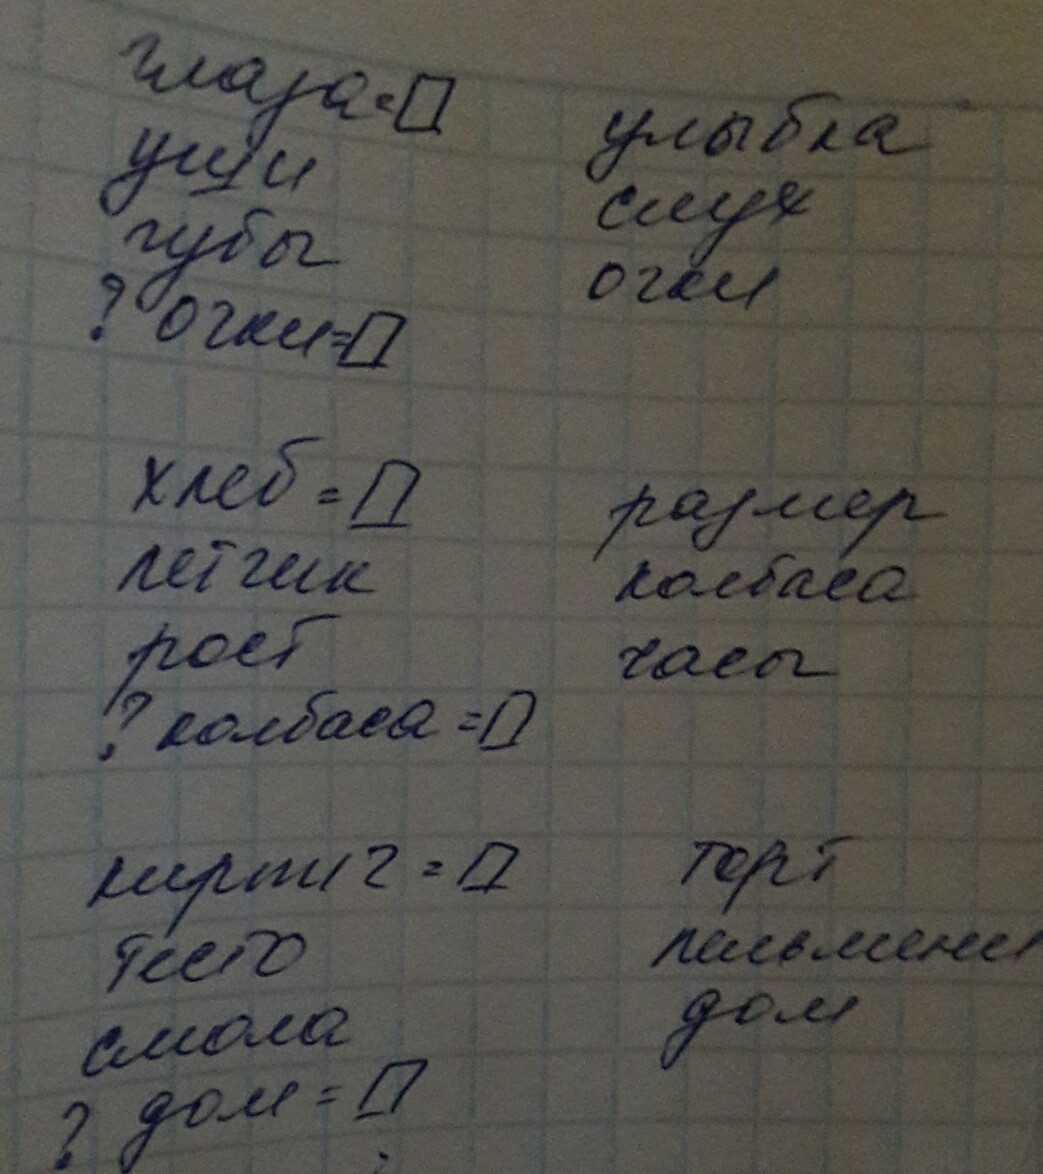 глаза=□ улыбка
уши слух
губы очки
? очки=□
хлеб=□ размер
летчик колбаса
рост часы
? колбаса=□
кирпич=□ торт
тесто пельмени
смола дом
? дом=□